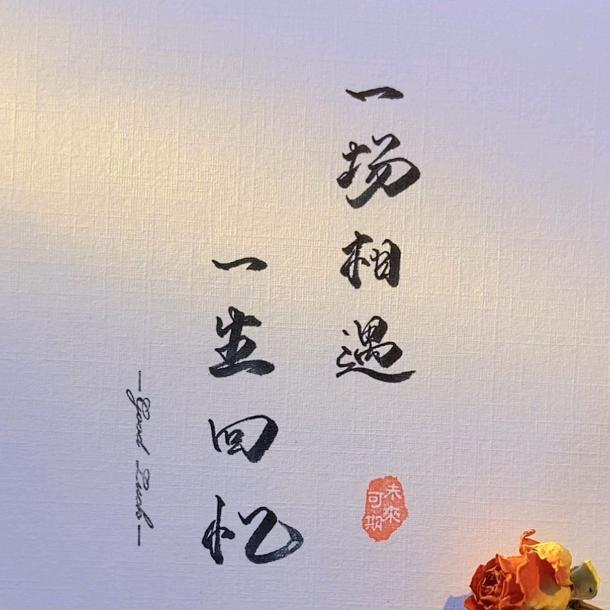 一场相遇
一生回忆
—Good Luck—
未來可期